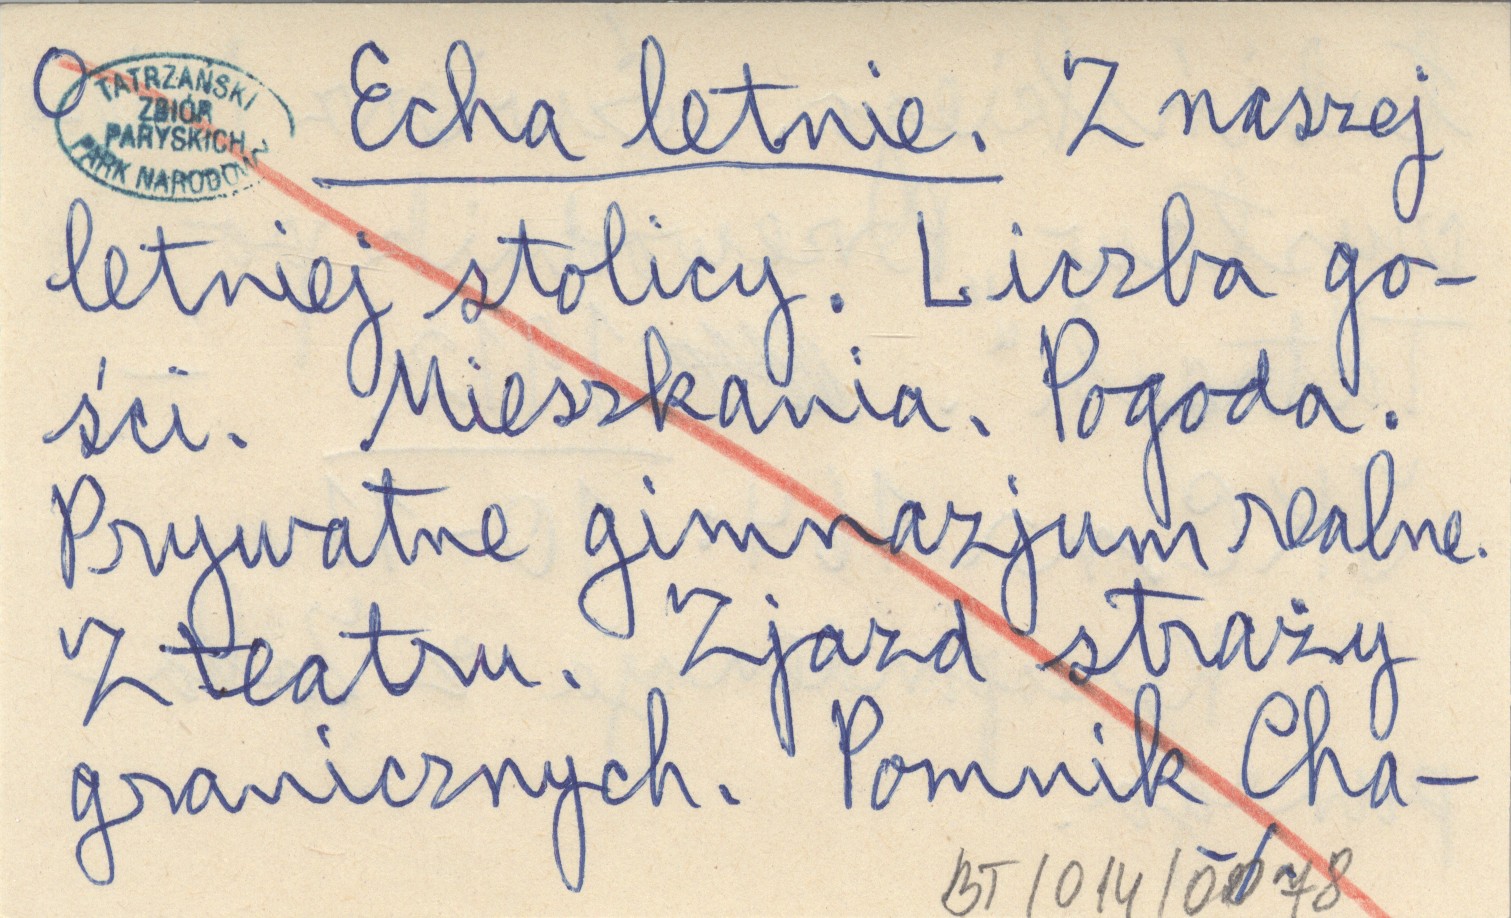 O Echa letnie. Z naszej
TATRZAŃSKI
ZBIÓR
PARYSKICH
PARK NARODOW
letniej stolicy. Liczba go-
ści. Mieszkania. Pogoda.
Prywatne gimnazjum realne.
Z teatru. Zjazd straży
granicznych. Pomnik Cha-
BT/014/